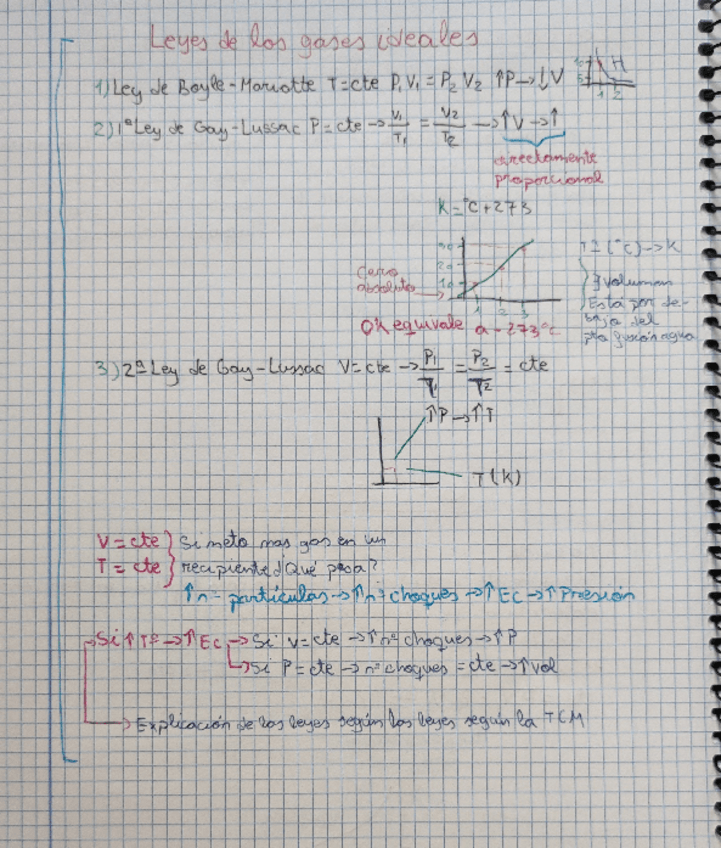 Leyes de los gases ideales
1) Ley de Boyle-Mariotte T=cte P₁V₁ = P₂V₂ ↑P→↓V
1 2
2) 1ª Ley de Gay-Lussac P=cte → V₁/T₁ = V2/T2 → ↑V→↑
directamente
proporcional
K=ºC+273
30
20
10
1 2 3
cero
absoluto
(ºC)→K
volumen
Está por de-
bajo del
agua
0K equivale a -273ºC
3) 2ª Ley de Gay-Lussac V=cte → P₁/T₁ = P₂/T2 = cte
↑P→↑T
T(K)
V=cte } Si meto mas gas en un
T=cte } recipiente ¿Qué pasa?
↑nº partículas→↑nº choques→↑Ec→↑Presión
Si ↑Tº→↑Ec→Si V=cte→↑nº choques→↑P
↳Si P=cte→nº choques=cte→↑vol
→Explicación de las leyes según las leyes según la TCM